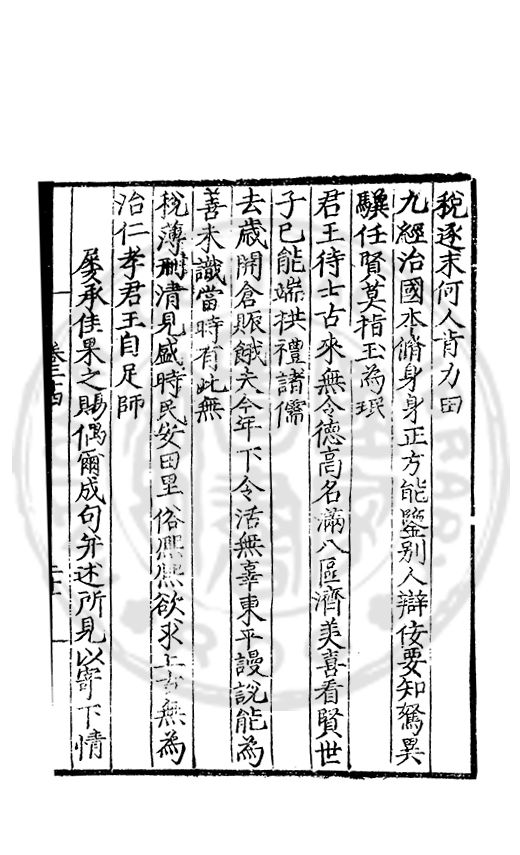 稅逐末何人肯力田
九經治國本脩身身正方能鑒別人辯佞要知駑異
驥任賢莫指玉為珉
君王待士古來無令德高名滿八區濟美喜看賢世
子已能端拱禮諸儒
去歲開倉賑餓夫今年下令活無辜東平謾說能為
善未識當時有此無
稅薄刑清見盛時民安田里俗熈熈欲求上古無為
治仁孝君王自足師
屡承佳果之賜偶爾成句并述所見以寄下情
卷三十四